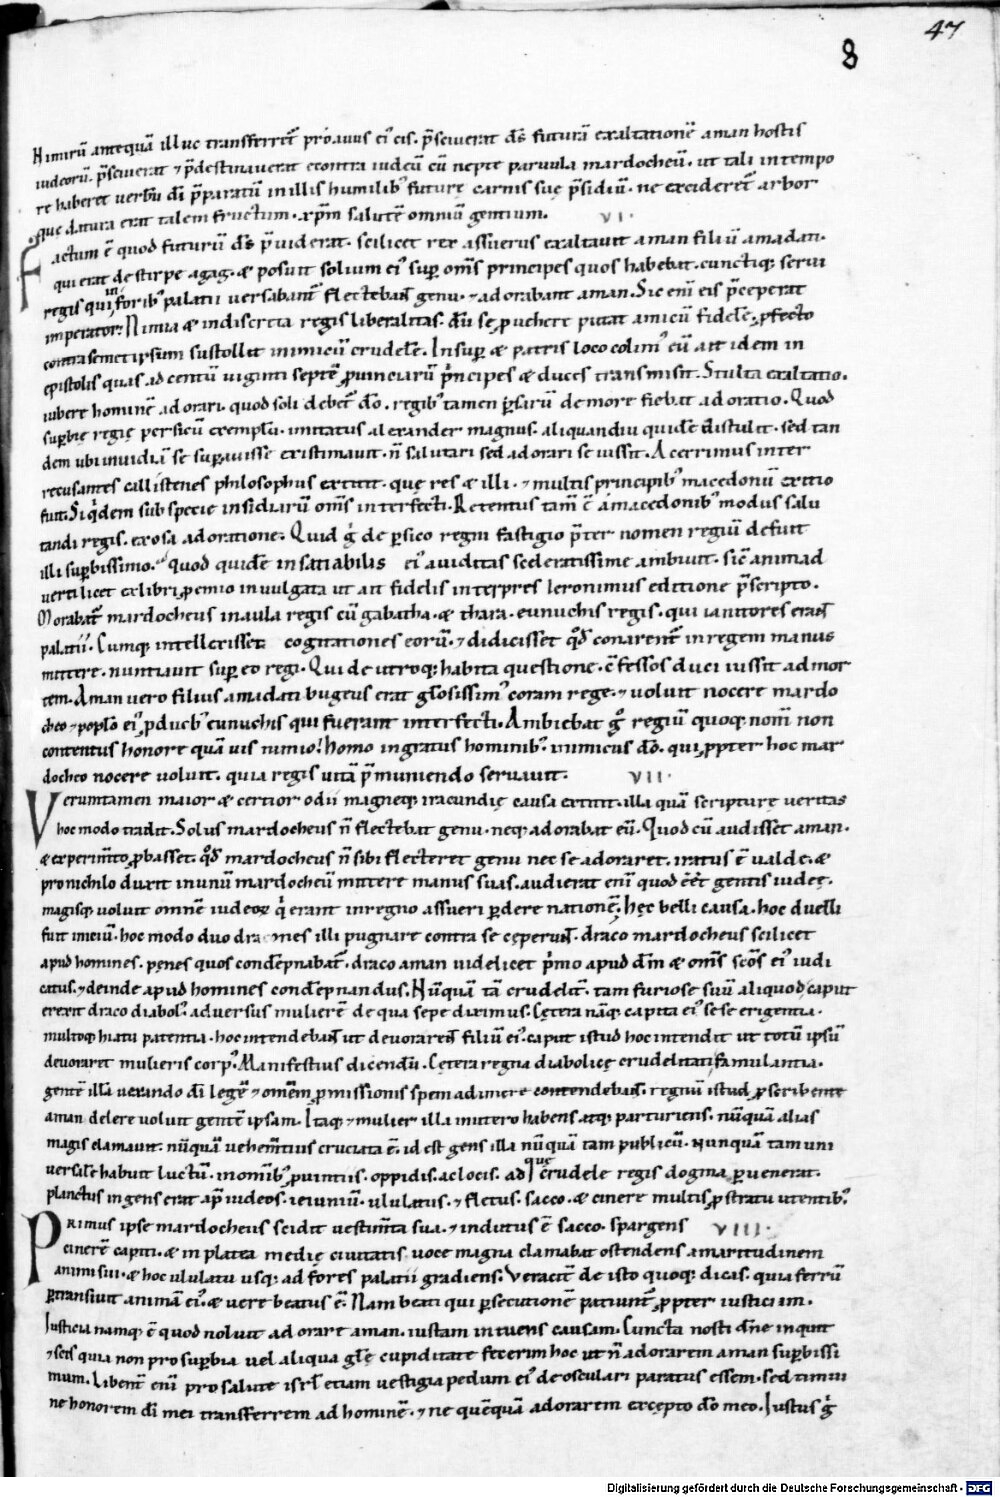 47
8
Nimirũ antequã illuc transferret᷒ proauus ei᷒ cis. p̃sciuerat dš futurã exaltationẽ aman hostis
iudeorũ. p̃sciuerat ⁊ p̃destinauerat econtra iudeũ cũ nepte paruula mardocheũ. ut tali in tempo
re haberet uerbũ dĩ p̃paratũ in illis humilib᷒ futurę carnis suę p̃sidiũ. ne excideret᷒ arbor
que datura erat talem fructum. xp̃m salutẽ omniũ gentium. VI.
Factum ẽ quod futurũ dš p̃uiderat. scilicet rex assuerus exaltauit aman filiũ amadati.
qui erat de stirpe agag. & posuit solium ei᷒ sup̲ om̃s principes quos habebat. cunctiq; serui
regis qui in forib᷒ palatii uersabant᷒ flectebant genu. ⁊ adorabant aman. Sic eni᷒ eis p̃ceperat
imperator. Nimia & indiscreta regis liberalitas. dũ se p̲uehere putat amicũ fidelẽ. p̲fecto
contra semet ipsum sustollit inimicũ crudelẽ. Insup̲ & patris loco colim᷒ eũ ait idem in
epistolis quas ad centũ uiginti septẽ ꝓuinciarũ p̃ncipes & duces transmisit. Stulta exaltatio.
iubere hominẽ adorari. quod soli debet᷒ dõ. regib᷒ tamen p̲sarũ de more fiebat adoratio. Quod
sup̲bię regię persicũ exemplũ. imitatus alexander magnus. aliquandiu quidẽ distulit. sed tan
dem ubi inuidiã se sup̲auisse existimauit. ñ salutari sed adorari se iussit. Acerrimus inter
recusantes callistenes philosophus extitit. que res & illi. ⁊ multis principib᷒ macedonũ exitio
fuit. Siq̃dem sub specie insidiarũ om̃s interfecti. Retentus tam̃ ẽ a macedonib᷒ modus salu
tandi regis. exosa adoratione. Quid g̃ de p̲sico regni fastigio p̃ter nomen regiũ defuit
illi sup̲bissimo. quod quidẽ insatiabilis ei᷒ auiditas sceleratissime ambiuit. sic̃ animad
uerti licet ex libri ꝓemio in uulgata ut ait fidelis interpres Ieronimus editione p̃scripto.
Morabat᷒ mardocheus in aula regis cũ gabatha. & thara. eunuchis regis. qui ianitores erant
palatii. Cumq; intellexisset cogitationes eorũ. ⁊ didicisset qd̃ conarent᷒ in regem manus
mittere. nuntiauit sup̲ eo regi. Qui de utroq; habita questione. cfessos duci iussit ad mor
tem. Aman uero filius amadati bugeus erat gl̃osissim᷒ coram rege. ⁊ uoluit nocere mardo
cheo ⁊ pop̲lo ei᷒. ꝓ duob᷒ eunuchis qui fuerant interfecti. Ambiebat g̃ regiũ quoq; nom̃ non
contentus honore quã uis nimio! homo ingratus hominib᷒. inimicus dõ. qui ꝓpter hoc mar
docheo nocere uoluit. quia regis uitã p̃muniendo seruauit. VII.
Veruntamen maior & certior odii magneq; iracundię causa extitit. illa quã scripturę ueritas
hoc modo tradit. Solus mardocheus ñ flectebat genu. neq; adorabat eũ. Quod cũ audisset aman.
& experim̃to ꝓbasset. qd̃ mardocheus ñ sibi flecteret genu nec se adoraret. iratus ẽ ualde. &
pro nichilo duxit in unũ mardocheũ mittere manus suas. audierat eni᷒ quod eẽt gentis iudeę.
magisq; uoluit omnẽ iudeoꝝ q̃ erant in regno assueri p̲dere nationẽ. hęc belli causa. hoc duelli
fuit iniciũ. hoc modo duo dracones illi pugnare contra se cęperunt. draco mardocheus scilicet
apud homines. penes quos condẽpnabat᷒. draco aman uidelicet p̃mo apud dñm & om̃s scõs ei᷒ iudi
catus. ⁊ deinde apud homines condẽpnandus. Nũquã tã crudelit᷒. tam furiose suũ aliquod caput
erexit draco diabol᷒. aduersus mulierẽ de qua sepe diximus. Cętera nãq; capita ei᷒ sese erigentia.
multoq; hiatu patentia. hoc intendebant ut deuorarent filiũ ei᷒. caput istud hoc intendit ut totũ ipsũ
deuoraret mulieris corp᷒. Manifestius dicendũ. Cętera regna diabolicę crudelitati famulantia.
gentẽ illã uexando dĩ legẽ ⁊ omẽm p̲missionis spem adimere contendebant. regnũ istud p̲scribente
aman delere uoluit gentẽ ipsam. Itaq; ⁊ mulier illa in utero habens atq; parturiens. nũquã alias
magis clamauit. nũquã uehem̃tius cruciata ẽ. id est gens illa nũquã tam publicũ. nunquã tam uni
uersalẽ habuit luctũ. in om̃ib᷒ ꝓuintiis. oppidis. ac locis. ad que crudele regis dogma p̲uenerat.
planctus ingens erat ap̃ iudeos. ieiuniũ. ululatus. ⁊ fletus. sacco. & cinere multis ꝓ stratu utentib᷒.
Primus ipse mardocheus scidit uestim̃ta sua. ⁊ indutus ẽ sacco. spargens VIII.
cinerẽ capiti. & in platea medię ciuitatis uoce magna clamabat ostendens amaritudinem
animi sui. & hoc ululatu usq; ad fores palatii gradiens. Veracit᷒ de isto quoq; dicas. quia ferrũ
p̲transiuit animã ei᷒. & uere beatus ẽ. Nam beati qui p̲secutionẽ patiunt᷒ ꝓpter iusticiam.
Iusticia namq; ẽ quod noluit adorare aman. iustam intuens causam. Cuncta nosti dñe inquit
⁊ scis quia non pro sup̲bia uel aliqua gl̃ę cupiditate fecerim hoc ut ñ adorarem aman sup̲bissi
mum. Libent᷒ eni᷒ pro salute isrl̃ etiam uestigia pedum ei᷒ deosculari paratus essem. sed timui
ne honorem dĩ mei transferrem ad hominẽ. ⁊ ne quẽquã adorarem excepto dõ meo. Iustus g̃
Digitalisierung gefördert durch die Deutsche Forschungsgemeinschaft - DFG